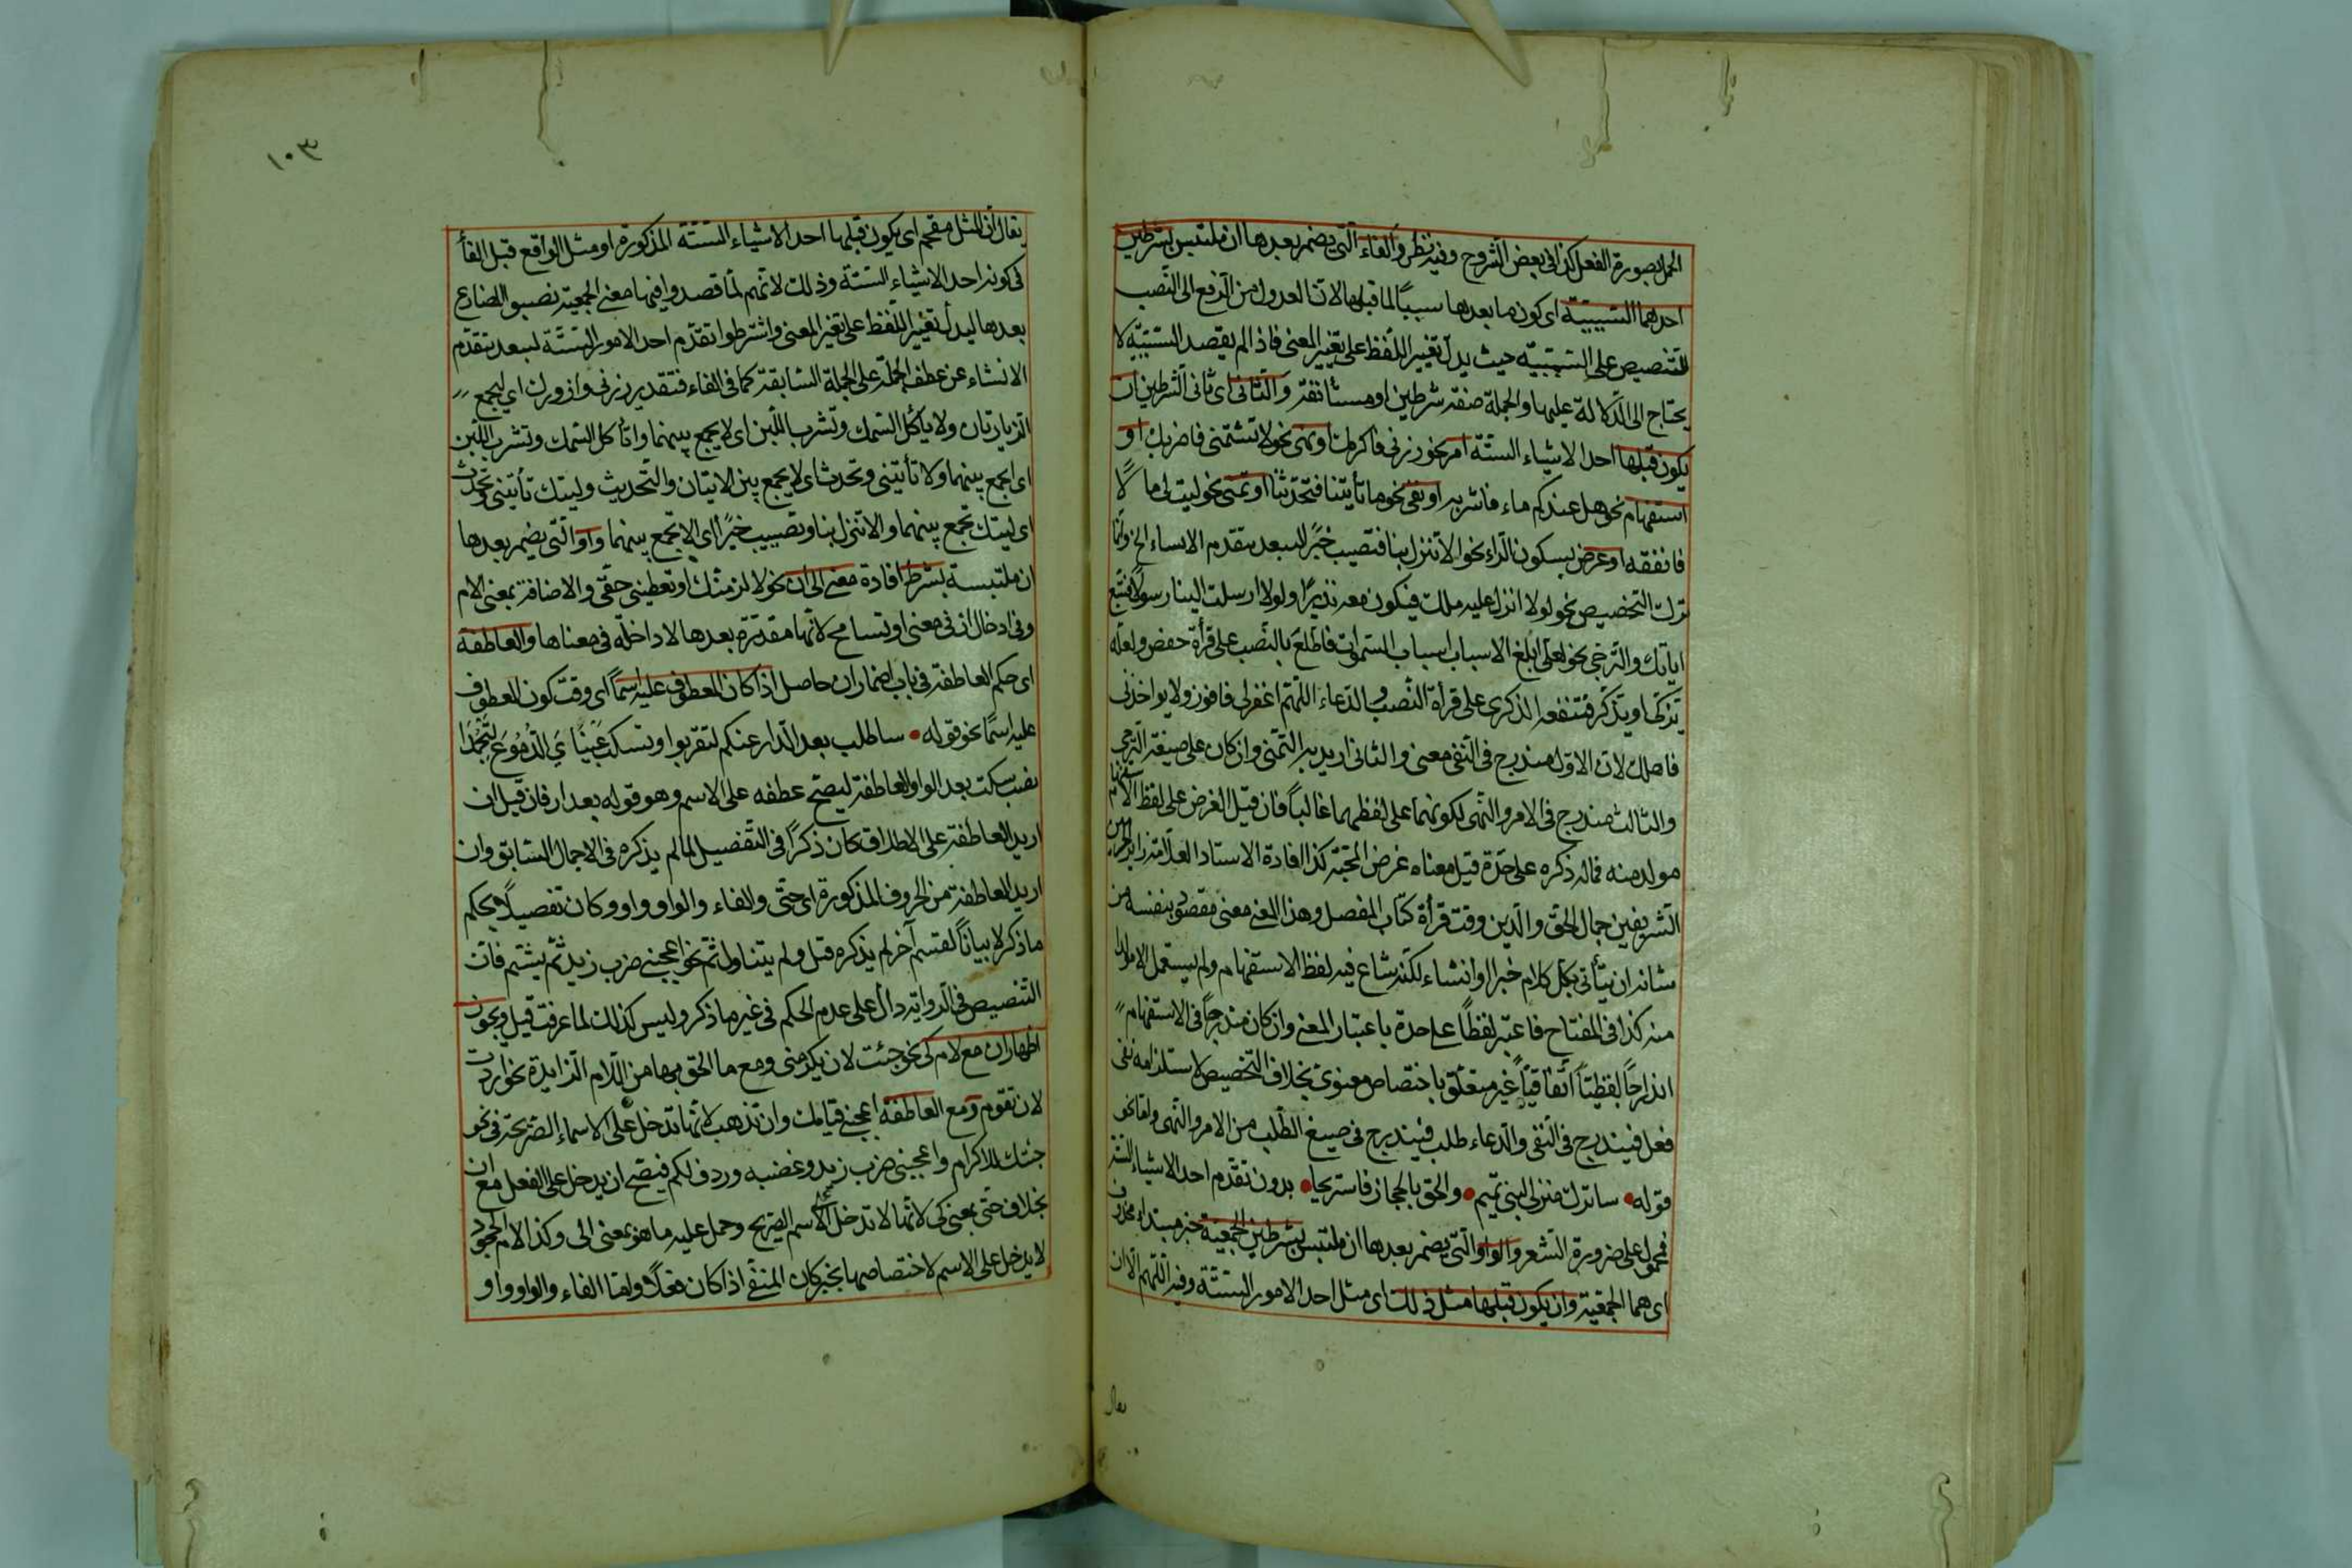 الجمل بصورة الفعل كذا فى بعض الشروح وفيه نظر والفاء التى يضمر بعدها ان ملتبس بشرطين
احدهما السببية اى كون ما بعدها سببًا لما قبلها لان العدول من الرفع الى النصب
للتنصيص على السببية حيث يدل تغيير اللفظ على تغيير المعنى فاذا لم يقصد السببية لا
يحتاج الى الدلالة عليها والجملة صفة شرطين او مستانفة والثانى اى ثانى الشرطين ان
يكون قبلها احد الاشياء الستة امر نحو زرنى فاكرمك او نهى نحو لا تشتمنى فاضربك او
استفهام نحو هل عندكم ماء فاشربه او نفى نحو ما تأتينا فتحدثنا او تمنى نحو ليت لى مالا
فانفقه او عرض بسكون الراء نحو الا تنزل بنا فتصيب خيرًا ليبعد بتقدم الاشياء الخ وانما
ترك التحضيض نحو لولا انزل عليه ملك فيكون معه نذيرًا ولولا ارسلت الينا رسولا فنتبع
اياتك والترجى نحو لعلى ابلغ الاسباب اسباب السموات فاطلع بالنصب على قرأة حفص ولعله
يزكى او يذكر فتنفعه الذكرى على قرأة النصب والدعاء اللهم اغفر لى فافوز ولا تواخذنى
فاهلك لان الاول مندرج فى النفى معنى والثانى اريد به التمنى وان كان على صيغة الترجى
والثالث مندرج فى الامر والنهى لكونهما على لفظهما غالبًا فان قيل العرض على لفظ الاستفهام
مولد منه فماله ذكره على حدة قيل معناه عرض المحبة كذا افاده الاستاد العلامة زائر الحرمين
الشريفين جمال الحق والدين وقت قرأة كتاب المفصل وهذا المعنى معنى مقصود بنفسه من
شانه ان يتأتى بكل كلام خبرا او انشاء لكنه شاع فيه لفظ الاستفهام ولم يستعمل الا مولدا
منه كذا فى المفتاح فاعتبر لفظًا على حدة باعتبار المعنى وان كان مندرجًا فى الاستفهام
اندراجًا لفظيًا اتفاقيًا غير متعلق باختصاص معنوى بخلاف التحضيض لاستلزامه نفى
فعل فيندرج فى النفى والدعاء طلب فيندرج فى صيغ الطلب من الامر والنهى واما نحو
قوله • ساترك منزلى لبنى تميم • والحق بالحجاز فاستريحا • بدون تقدم احد الاشياء الستة
فمحمول على ضرورة الشعر والواو التى يضمر بعدها ان ملتبس بشرطين الجمعية خبر مبتداء محذوف
اى هما الجمعية وان يكون قبلها مثل ذلك اى مثل احد الامور الستة وفيه اللهم الا ان
يقال
١٠٣
يقال ان المثل مقحم اى يكون قبلها احد الاشياء الستة المذكورة او مثل الواقع قبل الفأ
فى كونه احد الاشياء الستة وذلك لانهم لما قصدوا فيها معنى الجمعية نصبوا المضارع
بعدها ليدل تغيير اللفظ على تغير المعنى واشترطوا تقدم احد الامور الستة ليبعد بتقدم
الانشاء عن عطف الجملة على الجملة السابقة كما فى الفاء فتقدير زرنى وازورك اى ليجمع
الزيارتان ولا يأكل السمك وتشرب اللبن اى لا يجمع بينهما واتأكل السمك وتشرب اللبن
اى ايجمع بينهما ولا تأتينى وتحدث اى لا يجمع بين الاتيان والتحديث وليتك تأتينى وتحدث
اى ليتك تجمع بينهما والا تنزل بنا وتصيب خيرًا اى الا تجمع بينهما واو التى يضمر بعدها
ان ملتبسة بشرط افادة معنى الى ان نحو لالزمنك او تعطينى حقى والاضافة بمعنى اللام
وفى ادخال ان فى معنى او تسامح لانها مقدرة بعدها لا داخلة فى معناها والعاطفة
اى حكم العاطفة فى باب اضمار ان حاصل اذا كان المعطوف عليه اسمًا اى وقت كون المعطوف
عليه اسمًا نحو قوله • ساطلب بعد الدار عنكم لتقربوا وتسكب عيناى الدموع لتجمدا
نصب تسكب بعد الواو العاطفة ليصح عطفه على الاسم وهو قوله بعد الدار فان قيل ان
اريد العاطفة على الاطلاق كان ذكرًا فى التفصيل لما لم يذكره فى الاجمال السابق وان
اريد العاطفة من الحروف المذكورة اى حتى والفاء والواو واو وكان تفصيلًا بحكم
ما ذكر لا بيانًا لقسم آخر لم يذكره قبل ولم يتناول ثم نحو اعجبنى ضرب زيد ثم يشتم فان
التنصيص فى الرواية دال على عدم الحكم فى غير ما ذكر وليس كذلك لما عرفت قيل ويجوز
اظهار ان مع لام كى نحو جئت لان يكرمنى ومع ما الحق بها من اللام الزايدة نحو اردت
لان تقوم ومع العاطفة اعجبنى قيامك وان تذهب لانها تدخل على الاسماء الصريحة فى نحو
جئتك للاكرام واعجبنى ضرب زيد وغضبه وردف لكم فيصح ان يدخل على الفعل مع ان
بخلاف حتى بمعنى كى لانها لا تدخل على الاسم الصريح وحمل عليه ما هو بمعنى الى وكذا لام الجحود
لا يدخل على الاسم لاختصاصها بخبر كان المنفى اذا كان فعلًا واما الفاء والواو واو